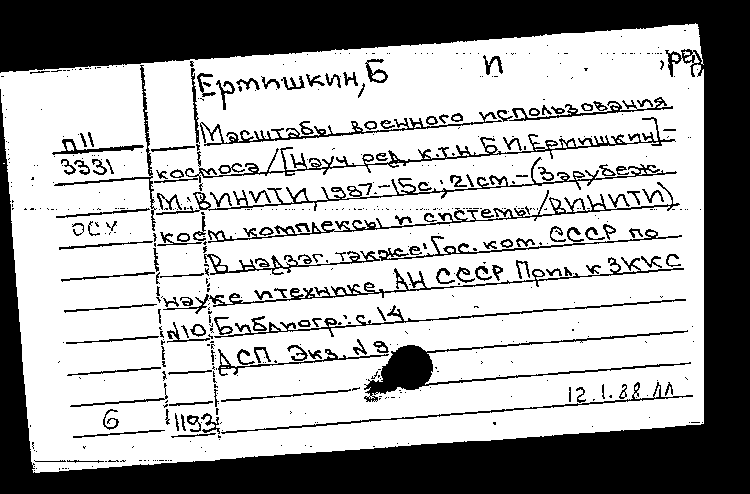 Ермишкин, Б И , ред
Масштабы военного использования
п11
3331 космоса/[Науч. ред. к.т.н. Б.И.Ермишкин].-
М.: ВИНИТИ, 1987.-15с.; 21см.-(Зарубеж.
ОСУ косм. комплексы и системы/ВИНИТИ)
В надзаг. также: Гос. ком. СССР по
науке и технике, АН СССР. Прил. к ЗККС
N10 Библиогр.: с. 14.
ДСП. Экз. N 9
12.1.88
6 1193